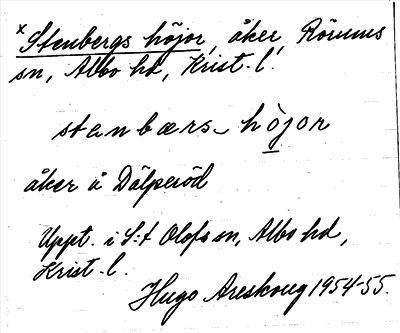 x Stenbergs höjor, åker, Rörums
sn, Albo hd, Krist. l.
stanbærs- höjor
åker å Dälperöd
Uppt. i S:t Olofs sn, Albo hd,
Krist. l.
Hugo Areskoug 1954-55.